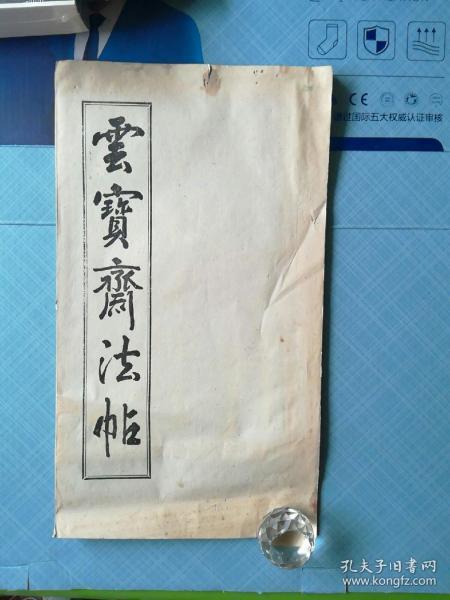 雲寶齋法帖
CE
通过国际五大权威认证审核
孔夫子旧书网
www.kongfz.com